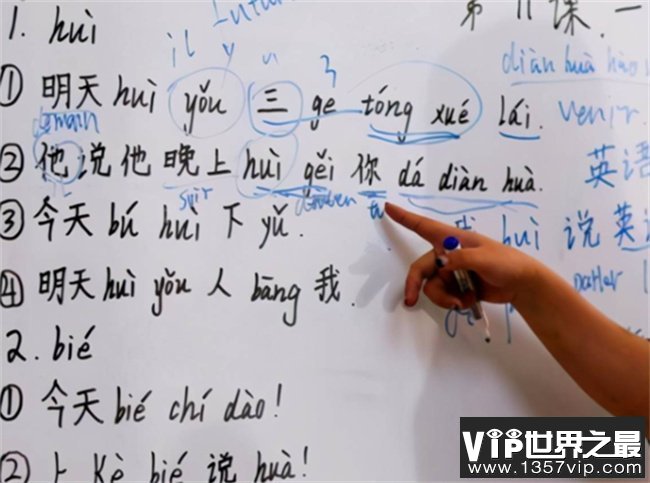 第11课.一
1. huì
il y
diàn huà hào
① 明天 huì yǒu 三 ge tóng xué lái. venir.
demain
② 他说他晚上 huì gěi 你 dá diàn huà. 英语
soir
tu
③ 今天 bú huì 下 yǔ. huì 说英
④ 明天 huì yǒu 人 bāng 我.
2. bié
① 今天 bié chí dào!
② 上 Kè bié 说 huà!
VIP世界之最
www.1357vip.com